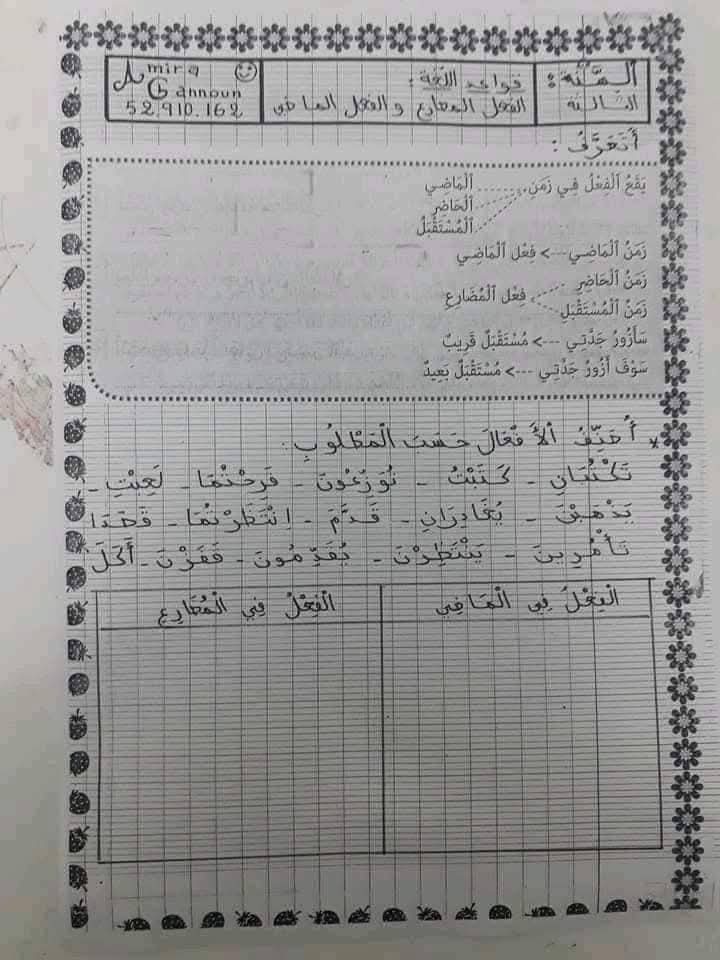 السَّنَة:
الثالثة
قواعد اللغة:
الفعل المضارع و الفعل الماضي
Amira
Gannoun
52.910.162
أَتَعَرَّفُ:
يَقَعُ الْفِعْلُ فِي زَمَنِ ........ الْمَاضِي
الْحَاضِرِ
الْمُسْتَقْبَلُ
زَمَنُ الْمَاضِي ---> فِعْل الْمَاضِي
زَمَنُ الْحَاضِرِ
فِعْل الْمُضَارِع
زَمَنُ الْمُسْتَقْبَلِ
سَأَزُورُ جَدَّتِي ---> مُسْتَقْبَلٌ قَرِيبٌ
سَوْفَ أَزُورُ جَدَّتِي ---> مُسْتَقْبَلٌ بَعِيدٌ
* أُصَنِّفُ الأَفْعَالَ حَسَبَ الْمَطْلُوبِ:
تَكْتُبَانِ - كَتَبْتُ - - فَرِحْتُمَا - لَعِبْتِ -
يَذْهَبْنَ - يُغَادِرَانِ - قَدَّمَ - اِنْتَظَرْتُمَا - قَصَدَا
تَأْمُرِينَ - يَنْتَظِرْنَ - يُقَدِّمُونَ - قَفَزْنَ - أَكَلَ
الْفِعْلُ فِي الْمَاضِي
الْفِعْلُ فِي الْمُضَارِع